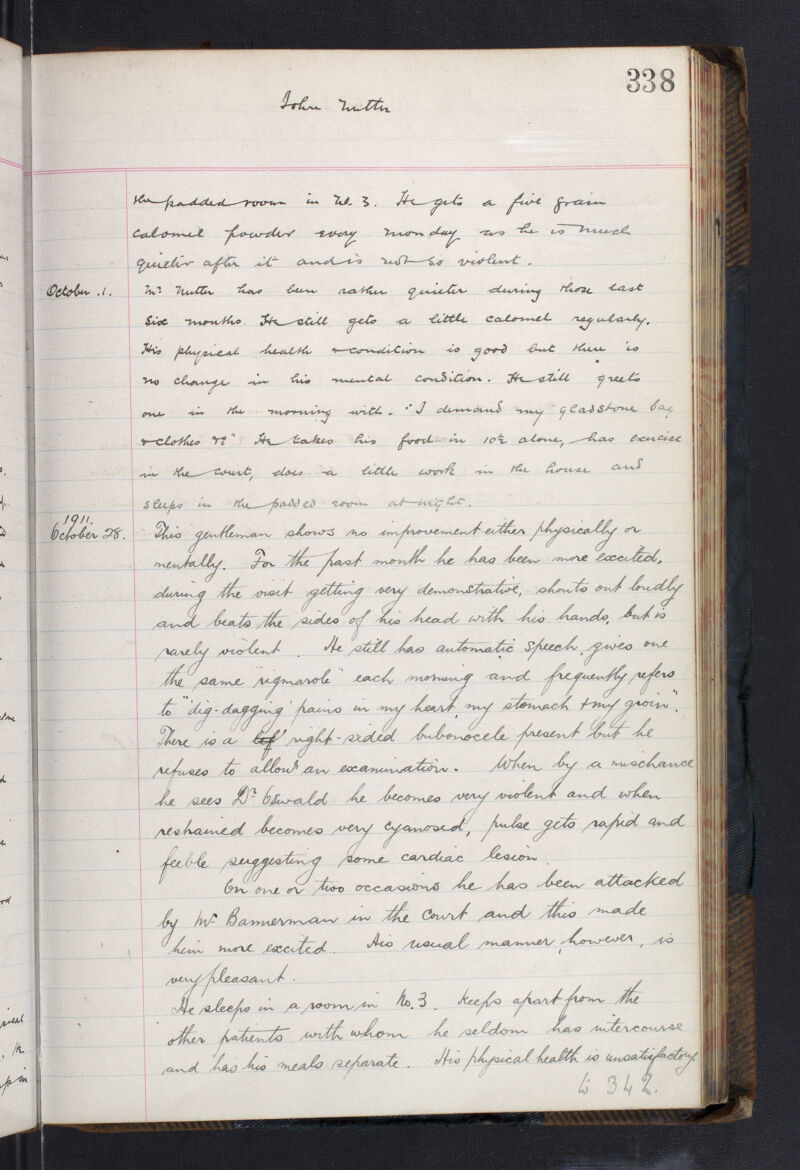 338
John Nutter
the padded room in No. 3. He gets a five grain
calomel powder every monday as he is much
quieter after it and is not so violent.
October .1. Mr. Nutter has been rather quieter during those last
Six months. He still gets a little calomel regularly.
His physical health & condition is good but there is
no change in his mental condition. He still greets
one in the morning with. "I demand my gladstone bag
& clothes &c" He takes his food in alone, has exercise
in the court, does a little work in the house and
sleeps in the padded room at night.
1911.
October 28. This gentleman shows no improvement either physically or
mentally. For the past month he has been more excited,
during the visit getting very demonstrative, shouts out loudly
and beats the sides of his head with his hands, but is
rarely violent. He still has automatic speech, gives one
the same "rigmarole" each morning and frequently refers
to "'dig-dagging' pains in my heart, my stomach & my groin".
There is a lef right-sided bubonocele present but he
refuses to allow an examination. When by a mischance
he sees Dr. Oswald he becomes very violent and when
restrained becomes very cyanosed, pulse gets rapid and
feeble suggesting some cardiac lesion.
On one or two occasions he has been attacked
by Mr. Bannerman in the court and this made
him more excited. His usual manner, however, is
very pleasant.
He sleeps in a room in No. 3. Keeps apart from the
other patients with whom he seldom has intercourse
and has his meals separate. His physical health is unsatisfactory.
to 342.